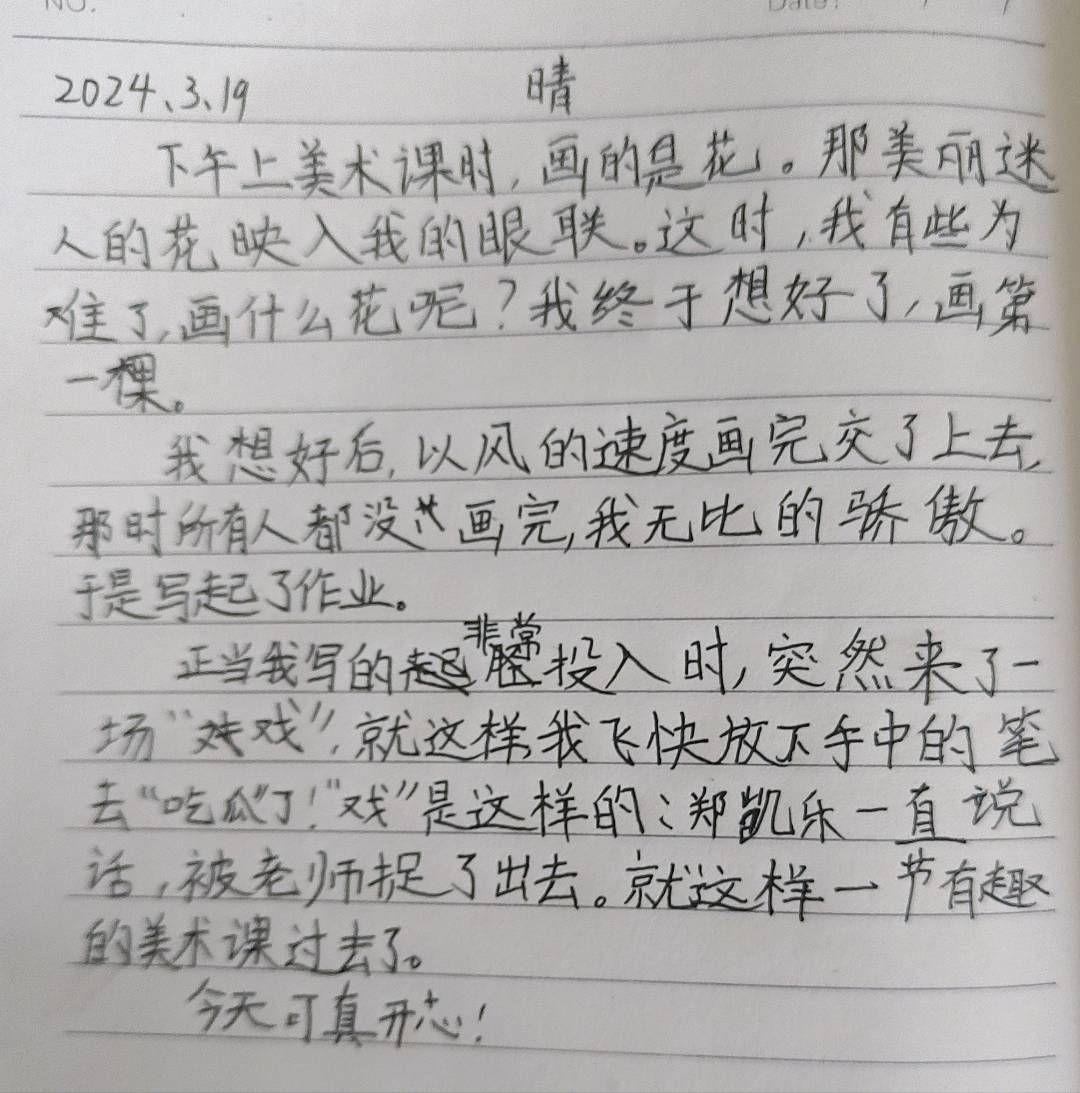 NO.
Date:
2024、3、19 晴
下午上美术课时,画的是花。那美丽迷
人的花映入我的眼联。这时,我有些为
难了,画什么花呢?我终于想好了,画第
一棵。
我想好后,以风的速度画完交了上去,
那时所有人都没画完,我无比的骄傲。
于是写起了作业。
正当我写的非常投入时,突然来了一
场“戏”,就这样,我飞快放下手中的笔
去“吃瓜”了!“戏”是这样的:郑凯乐一直说
话,被老师捉了出去。就这样一节有趣
的美术课过去了。
今天可真开心!